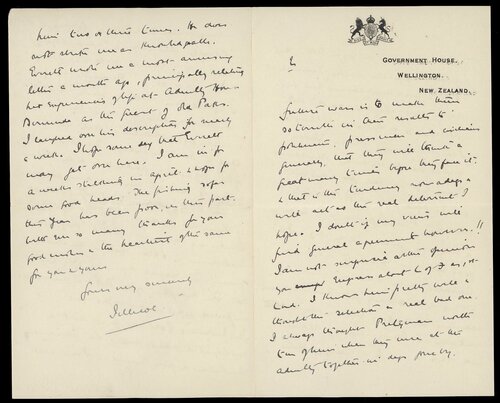 GOVERNMENT HOUSE,
WELLINGTON.
NEW ZEALAND.
future wars is to make them
so terrible in their results to
politicians, pressmen and civilians
generally, that they will think a
great many times before they face it.
& that is the tendency nowadays &
will act as the real deterrent I
hope. I doubt if my views will
find general agreement however!!
I am not surprised at the opinion
you express about C of F as, at
I know him pretty well &
thought the selection a real bad one.
I always thought Prettyman worth
ten of him when they were at the
Admlty together in days gone by.
him two or three times. He does
not strike me as
Everett wrote me a most amusing
letter a month ago, principally relating
his experiences of life at Admlty House
Bermuda as the guest of old Pakn.
I laughed over his description for nearly
a week. I hope some day that Everett
may get over here. I am in for
a weeks stalking in April & hope for
some good heads. The fishing so far
this year has been poor, in this part.
With ever so many thanks for your
good wishes & the heartiest of the same
for you & yours
Yours very sincerely
Jellicoe